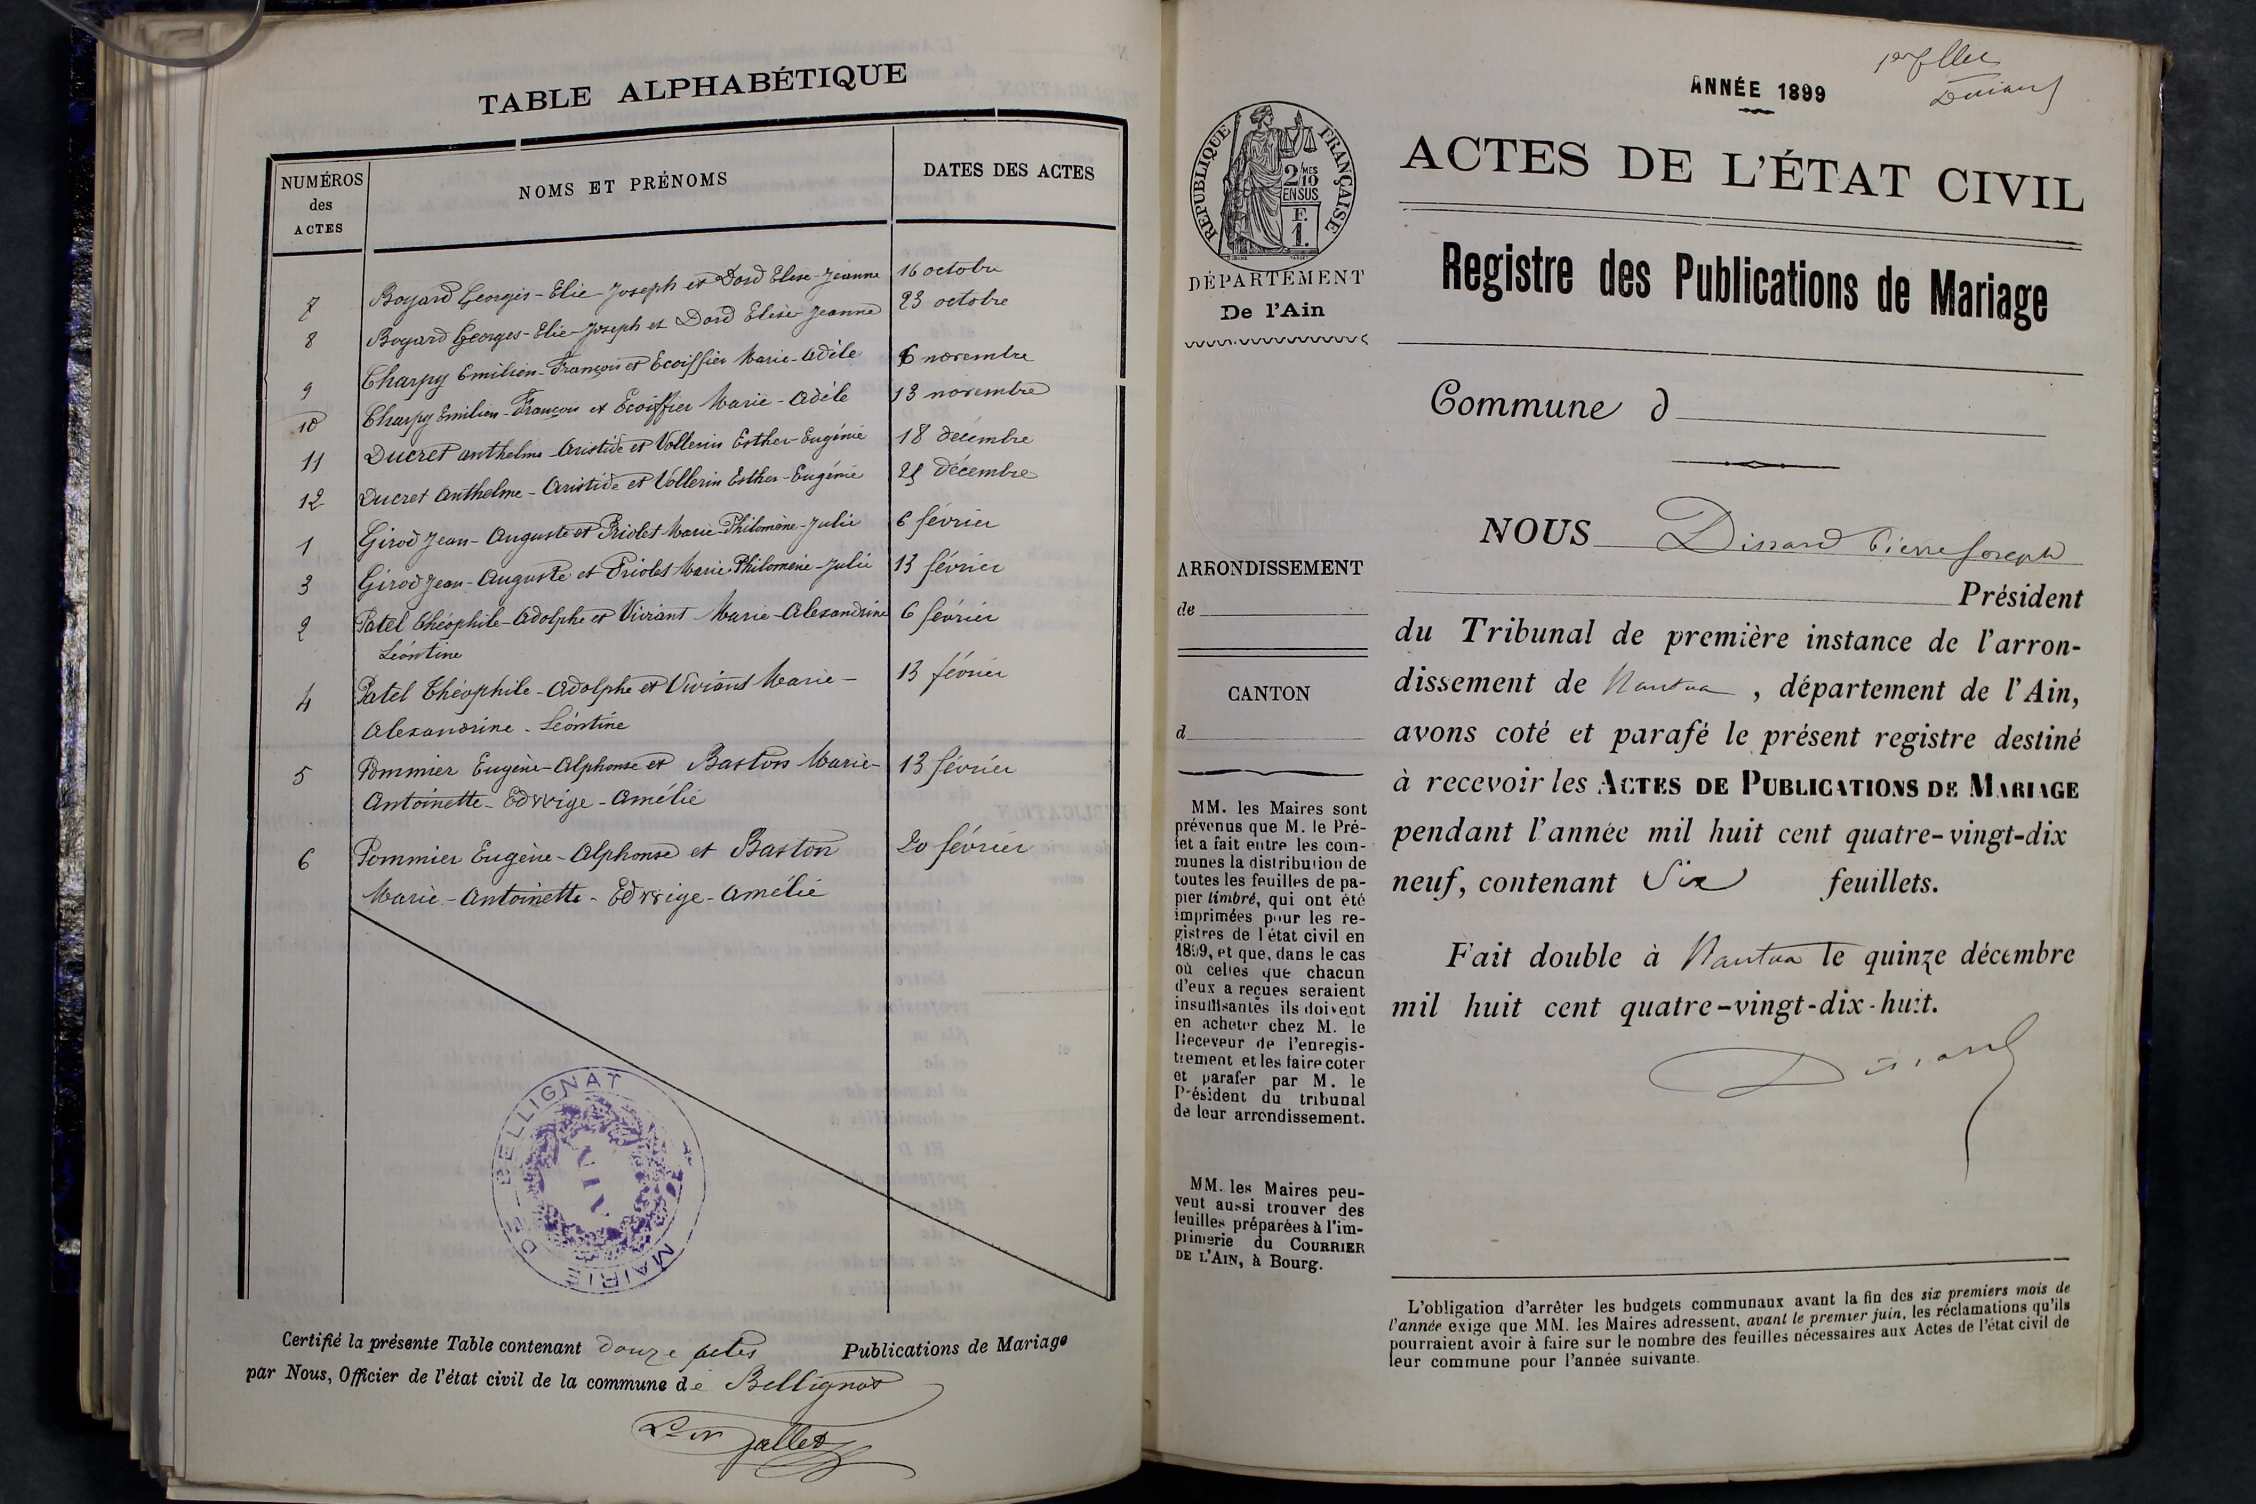 TABLE ALPHABÉTIQUE
NUMÉROS
des
ACTES
NOMS ET PRÉNOMS
DATES DES ACTES
7 Boyard Georges-Elie-Joseph et Dord Elise-Jeanne 16 octobre
8 Boyard Georges-Elie-Joseph et Dord Elise-Jeanne 23 octobre
9 Charpy Emilien-François et Ecoiffier Marie-Adèle 6 novembre
10 Charpy Emilien-François et Ecoiffier Marie-Adèle 13 novembre
11 Ducret Anthelme-Aristide et Vollerin Esther-Eugénie 18 décembre
12 Ducret Anthelme-Aristide et Vollerin Esther-Eugénie 25 décembre
1 Girod Jean-Auguste et Friolet Marie-Philomène-Julie 6 février
3 Girod Jean-Auguste et Friolet Marie Philomène-Julie 13 février
2 Patel Théophile-Adolphe et Viviant Marie-Alexandrine 6 février
Léontine
4 Patel Théophile-Adolphe et Viviant Marie- 13 février
Alexandrine-Léontine
5 Pommier Eugène-Alphonse et Baston Marie- 13 février
Antoinette-Edwige-Amélie
6 Pommier Eugène-Alphonse et Baston 20 février
Marie-Antoinette-Edwige-Amélie
MAIRIE DE BELLIGNAT
AIN
Certifié la présente Table contenant douze actes Publications de Mariage
par Nous, Officier de l'état civil de la commune de Bellignat
1er fllet
ANNÉE 1899
ACTES DE L'ÉTAT CIVIL
Registre des Publications de Mariage
RÉPUBLIQUE FRANÇAISE
2/10MES
EN SUS
F.
1.
DÉPARTEMENT
De l'Ain
Commune d
NOUS Dissard Pierre Joseph
Président
du Tribunal de première instance de l'arron-
dissement de Nantua, département de l'Ain,
avons coté et parafé le présent registre destiné
à recevoir les ACTES DE PUBLICATIONS DE MARIAGE
pendant l'année mil huit cent quatre-vingt-dix
neuf, contenant Six feuillets.
Fait double à Nantua le quinze décembre
mil huit cent quatre-vingt-dix-huit.
Dissard
ARRONDISSEMENT
de
CANTON
d
MM. les Maires sont
prévenus que M. le Pré-
fet a fait entre les com-
munes la distribution de
toutes les feuilles de pa-
pier timbré, qui ont été
imprimées pour les re-
gistres de l'état civil en
1899, et que, dans le cas
où celles que chacun
d'eux a reçues seraient
insuffisantes ils doivent
en acheter chez M. le
Receveur de l'enregis-
trement et les faire coter
et parafer par M. le
Président du tribunal
de leur arrondissement.
MM. les Maires peu-
vent aussi trouver des
feuilles préparées à l'im-
primerie du COURRIER
DE L'AIN, à Bourg.
L'obligation d'arrêter les budgets communaux avant la fin des six premiers mois de
l'année exige que MM. les Maires adressent, avant le premier juin, les réclamations qu'ils
pourraient avoir à faire sur le nombre des feuilles nécessaires aux Actes de l'état civil de
leur commune pour l'année suivante.